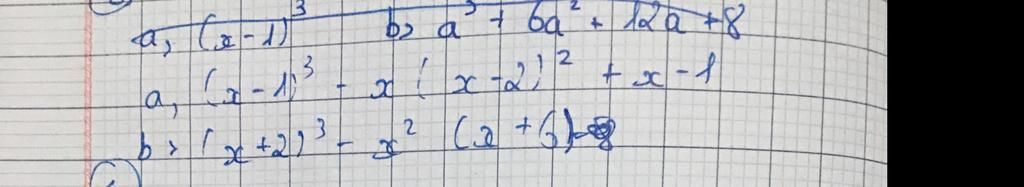 a, (x-1)³ b> a³ + 6a² + 12a + 8
a, (x-1)³ - x(x-2)² + x - 1
b> (x+2)³ - x² (x+6) - 8